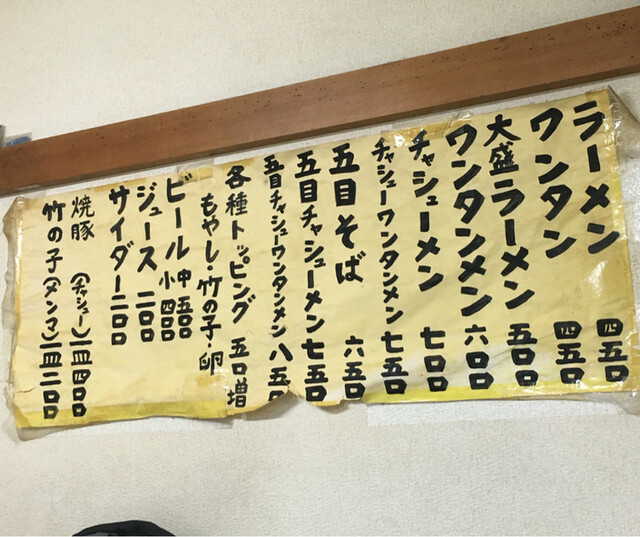 ラーメン 四五〇
ワンタン 四五〇
大盛ラーメン 五〇〇
ワンタンメン 六〇〇
チャシューメン 七〇〇
チャシューワンタンメン 七五〇
五目そば 六五〇
五目チャシューメン 七五〇
五目チャシューワンタンメン 八五〇
各種トッピング 五〇増
もやし・竹の子・卵
ビール 中 五〇〇
小 四〇〇
ジュース 二〇〇
サイダー 二〇〇
焼豚(チャシュー)一皿四〇〇
竹の子(メンマ)一皿二〇〇